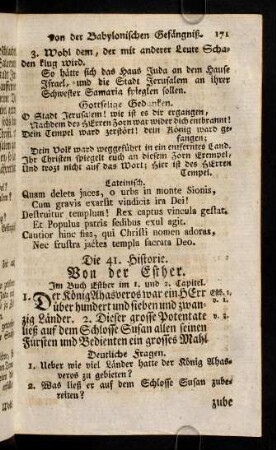 von der Babylonischen Gefängniß. 171
3. Wohl dem, der mit anderer Leute Scha-
den klug wird.
So hätte sich das Haus Juda an dem Hause
Israel, und die Stadt Jerusalem an ihrer
Schwester Samaria spieglen sollen.
Gottselige Gedanken.
O Stadt Jerusalem! wie ist es dir ergangen,
Nachdem des HErren Zorn war wider dich entbrannt!
Dein Tempel ward zerstört! dein König ward ge-
fangen;
Dein Volk ward weggeführt in ein entferntes Land.
Ihr Christen spiegelt euch an diesem Zorn-Exempel,
Und trotz nicht auf das Wort: Hier ist des HErren
Tempel.
Lateinisch.
Quam deleta jaces, o urbs in monte Sionis,
Cum gravis exarsit vindicis ira Dei!
Destruitur templum! Rex captus vincula gestat,
Et Populus patriis sedibus exul agit.
Cautior hinc fias, qui Christi nomen adoras,
Nec frustra jactes templa sacrata Deo.
Die 41. Historie.
Von der Esther.
Im Buch Esther im 1. und 2. Capitel.
1. Der König Ahasveros war ein HErr
über hundert und sieben und zwan-
zig Länder. 2. Dieser grosse Potentate
ließ auf dem Schlosse Susan allen seinen
Fürsten und Bedienten ein grosses Mahl
Deutliche Fragen.
1. Ueber wie viel Länder hatte der König Ahas-
veros zu gebieten?
2. Was ließ er auf dem Schlosse Susan zube-
reiten?
zube